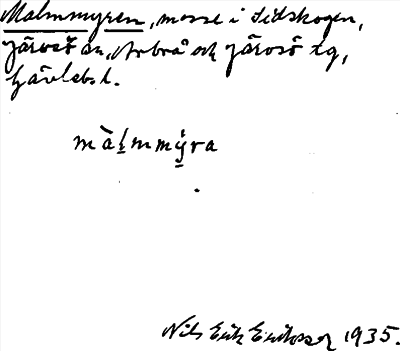 Malmmyren, mosse i Lidskogen,
Järvsö sn, Arbrå och Järvsö tg,
Gävlebs l.
màlmmýra
Nils Erik Eriksson 1935.